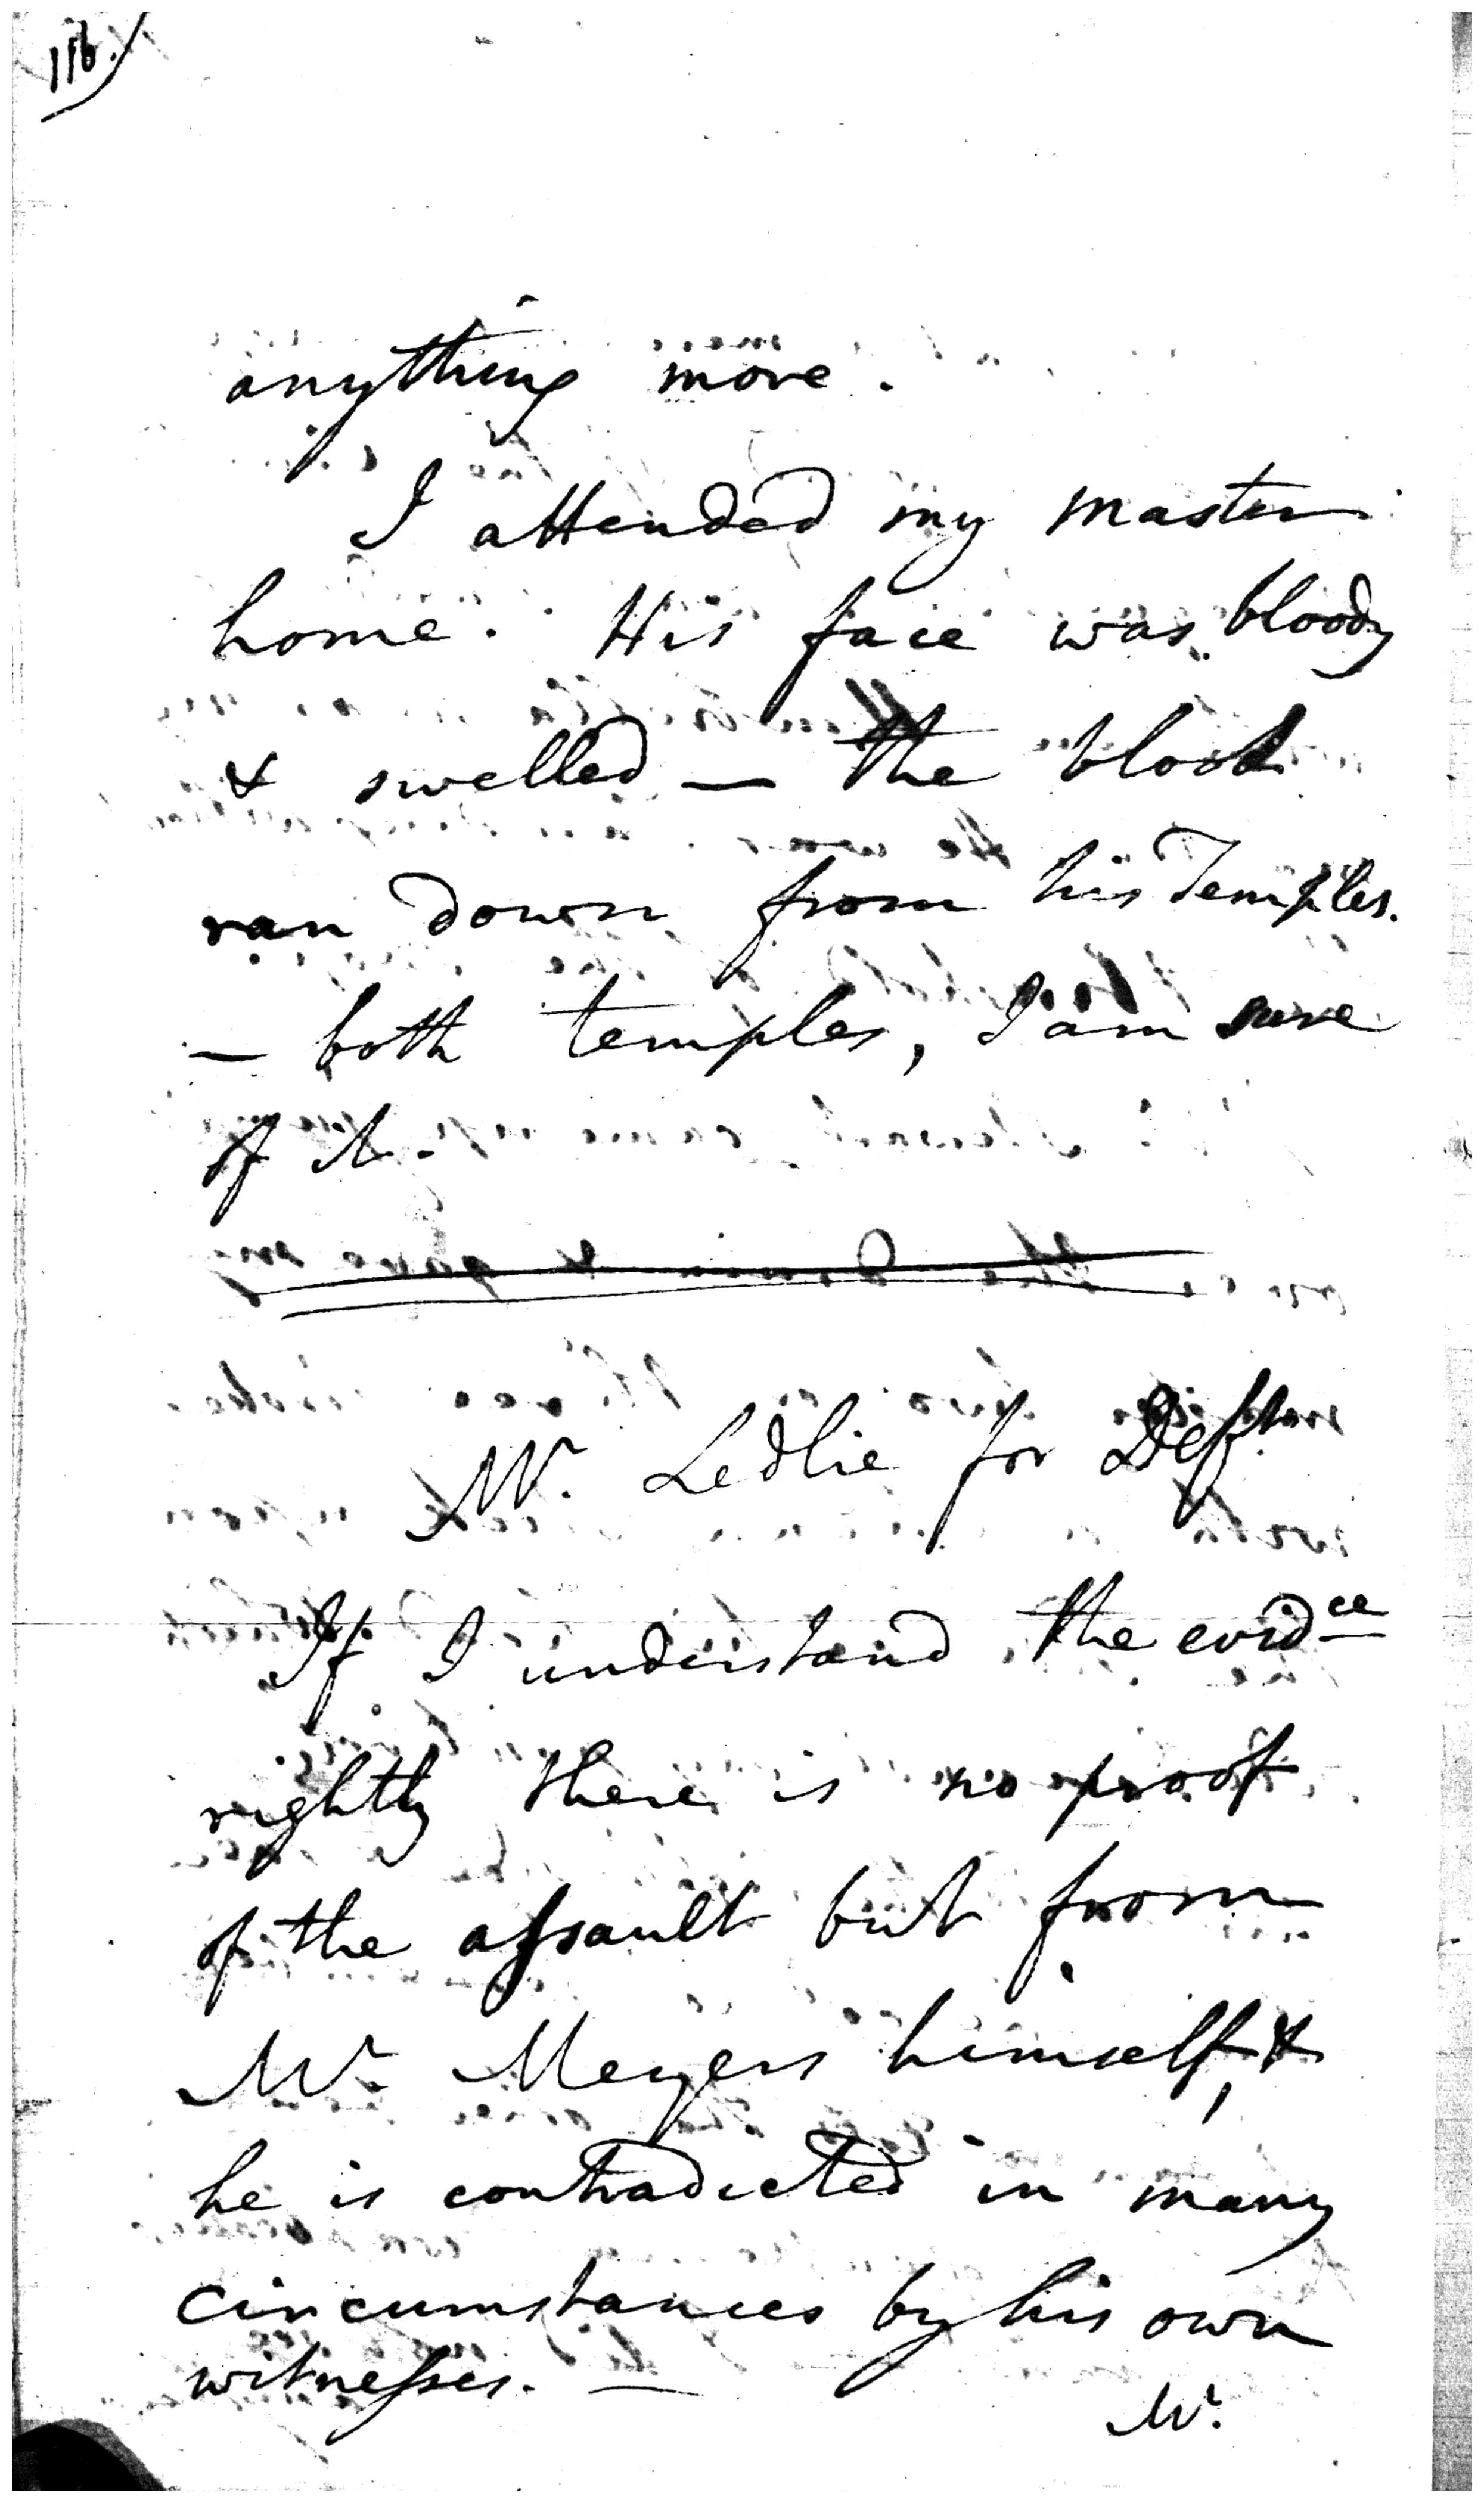 116.
anything more.
I attended my master
home. His face was bloody
& swelled — the blood
ran down from his Temples.
— both temples, I am sure
of it.
Mr. Ledlie for Deft.
If I understand the evidce
rightly there is no proof
of the assault but from
Mr. Meyers himself, &
he is contradicted in many
circumstances by his own
witnesses. —
Mr.